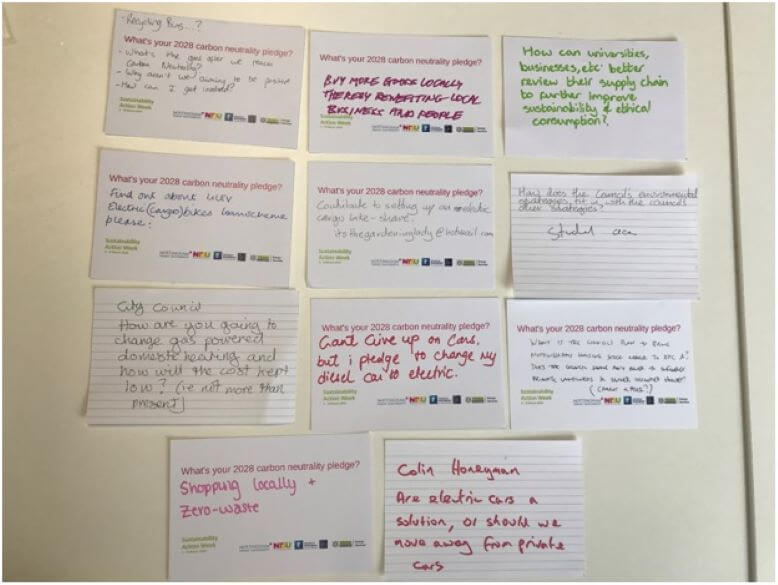 - Recycling Bins...?
What's your 2028 carbon neutrality pledge?
- What's the goal after we reach
Carbon Neutrality?
- Why aren't we aiming to be positive
- How can I get involved?
Sustainability
Action Week
NTU
What's your 2028 carbon neutrality pledge?
BUY MORE GOODS LOCALLY
THEREBY BENEFITING LOCAL
BUSINESS AND PEOPLE
Sustainability
Action Week
NTU
How can universities,
businesses, etc. better
review their supply chain
to further improve
sustainability & ethical
consumption?
What's your 2028 carbon neutrality pledge?
Find out about ULEV
Electric (cargo) bikes loan scheme
please!
Sustainability
Action Week
NTU
What's your 2028 carbon neutrality pledge?
Contribute to setting up an electric
cargo bike-share.
itsthegardeninglady@hotmail.com
Sustainability
Action Week
NTU
How does the Council's environmental
strategies fit in with the council's
other strategies?
City Council
How are you going to
change gas powered
domestic heating and
how will the cost kept
low? (ie not more than
present)
What's your 2028 carbon neutrality pledge?
Cant Give up on Cars,
but i pledge to change my
diesel car to electric.
Sustainability
Action Week
NTU
What's your 2028 carbon neutrality pledge?
WHAT IS THE COUNCIL PLAN TO BRING
HOUSING STOCK TO EPC A?
DOES THE COUNCIL HAVE
Sustainability
Action Week
NTU
What's your 2028 carbon neutrality pledge?
Shopping locally +
Zero-waste
Sustainability
Action Week
NTU
Colin Honeyman
Are electric cars a
solution, or should we
move away from private
cars